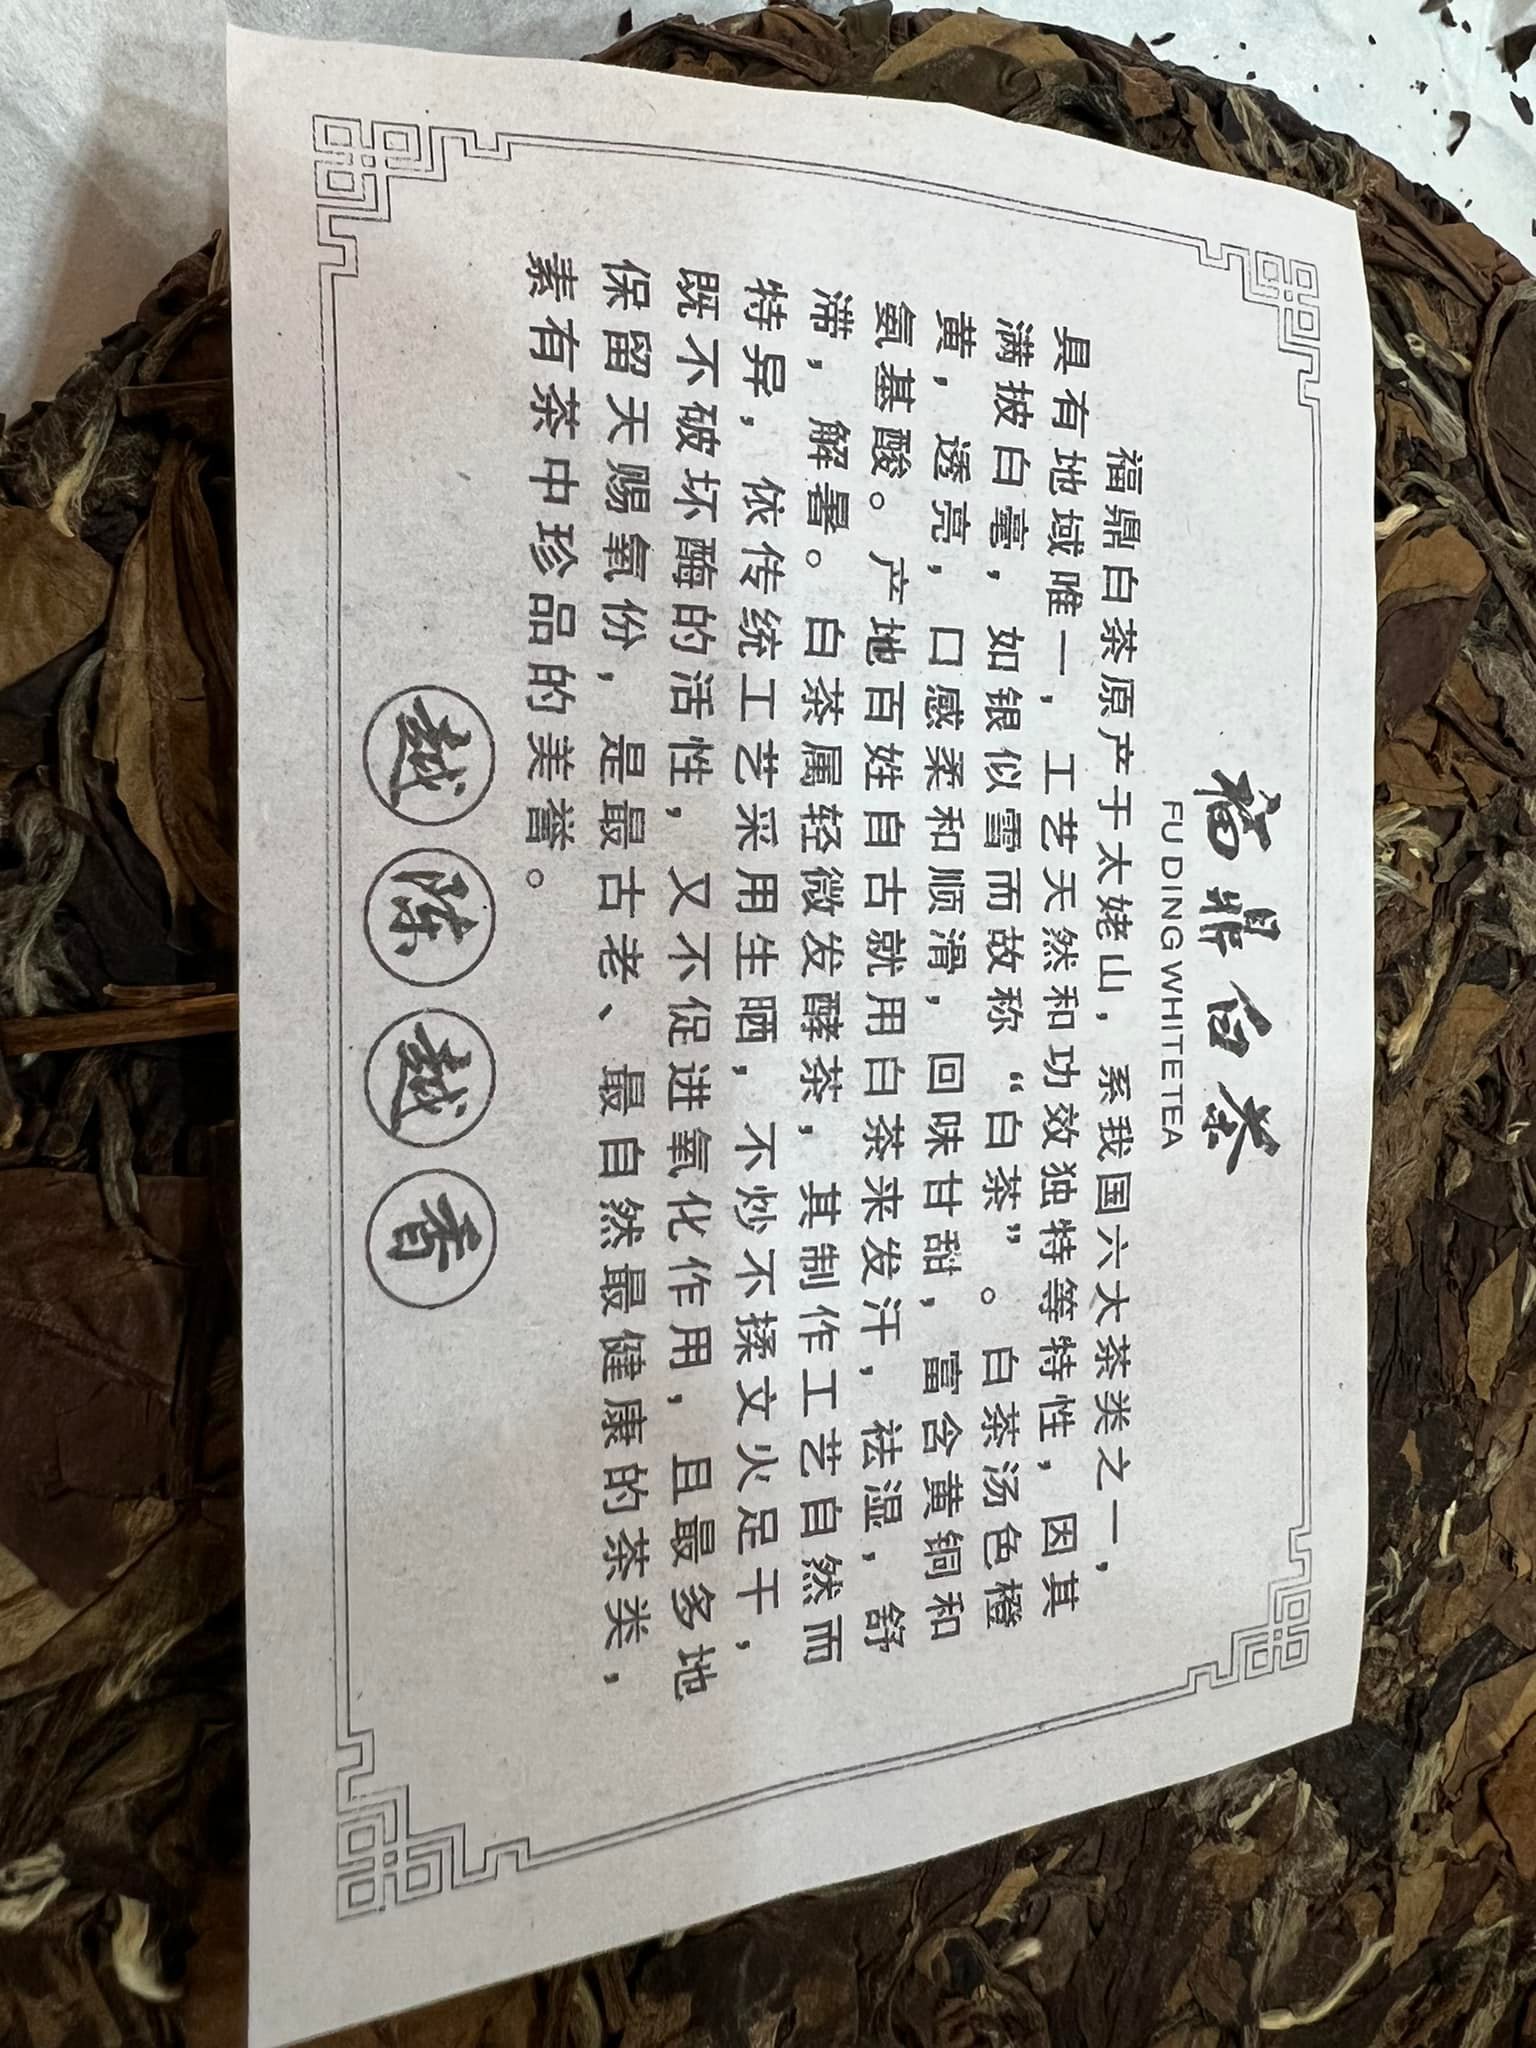 福鼎白茶
FU DING WHITE TEA
福鼎白茶原产于太姥山，系我国六大茶类之一，
具有地域唯一，工艺天然和功效独特等特性，因其
满披白毫，如银似雪而故称“白茶”。白茶汤色橙
黄，透亮，口感柔和顺滑，回味甘甜，富含黄铜和
氨基酸。产地百姓自古就用白茶来发汗，祛湿，舒
滞，解暑。白茶属轻微发酵茶，其制作工艺自然而
特异，依传统工艺采用生晒，不炒不揉文火足干，
既不破坏酶的活性，又不促进氧化作用，且最多地
保留天赐氧份，是最古老、最自然最健康的茶类，
素有茶中珍品的美誉。
越陈越香